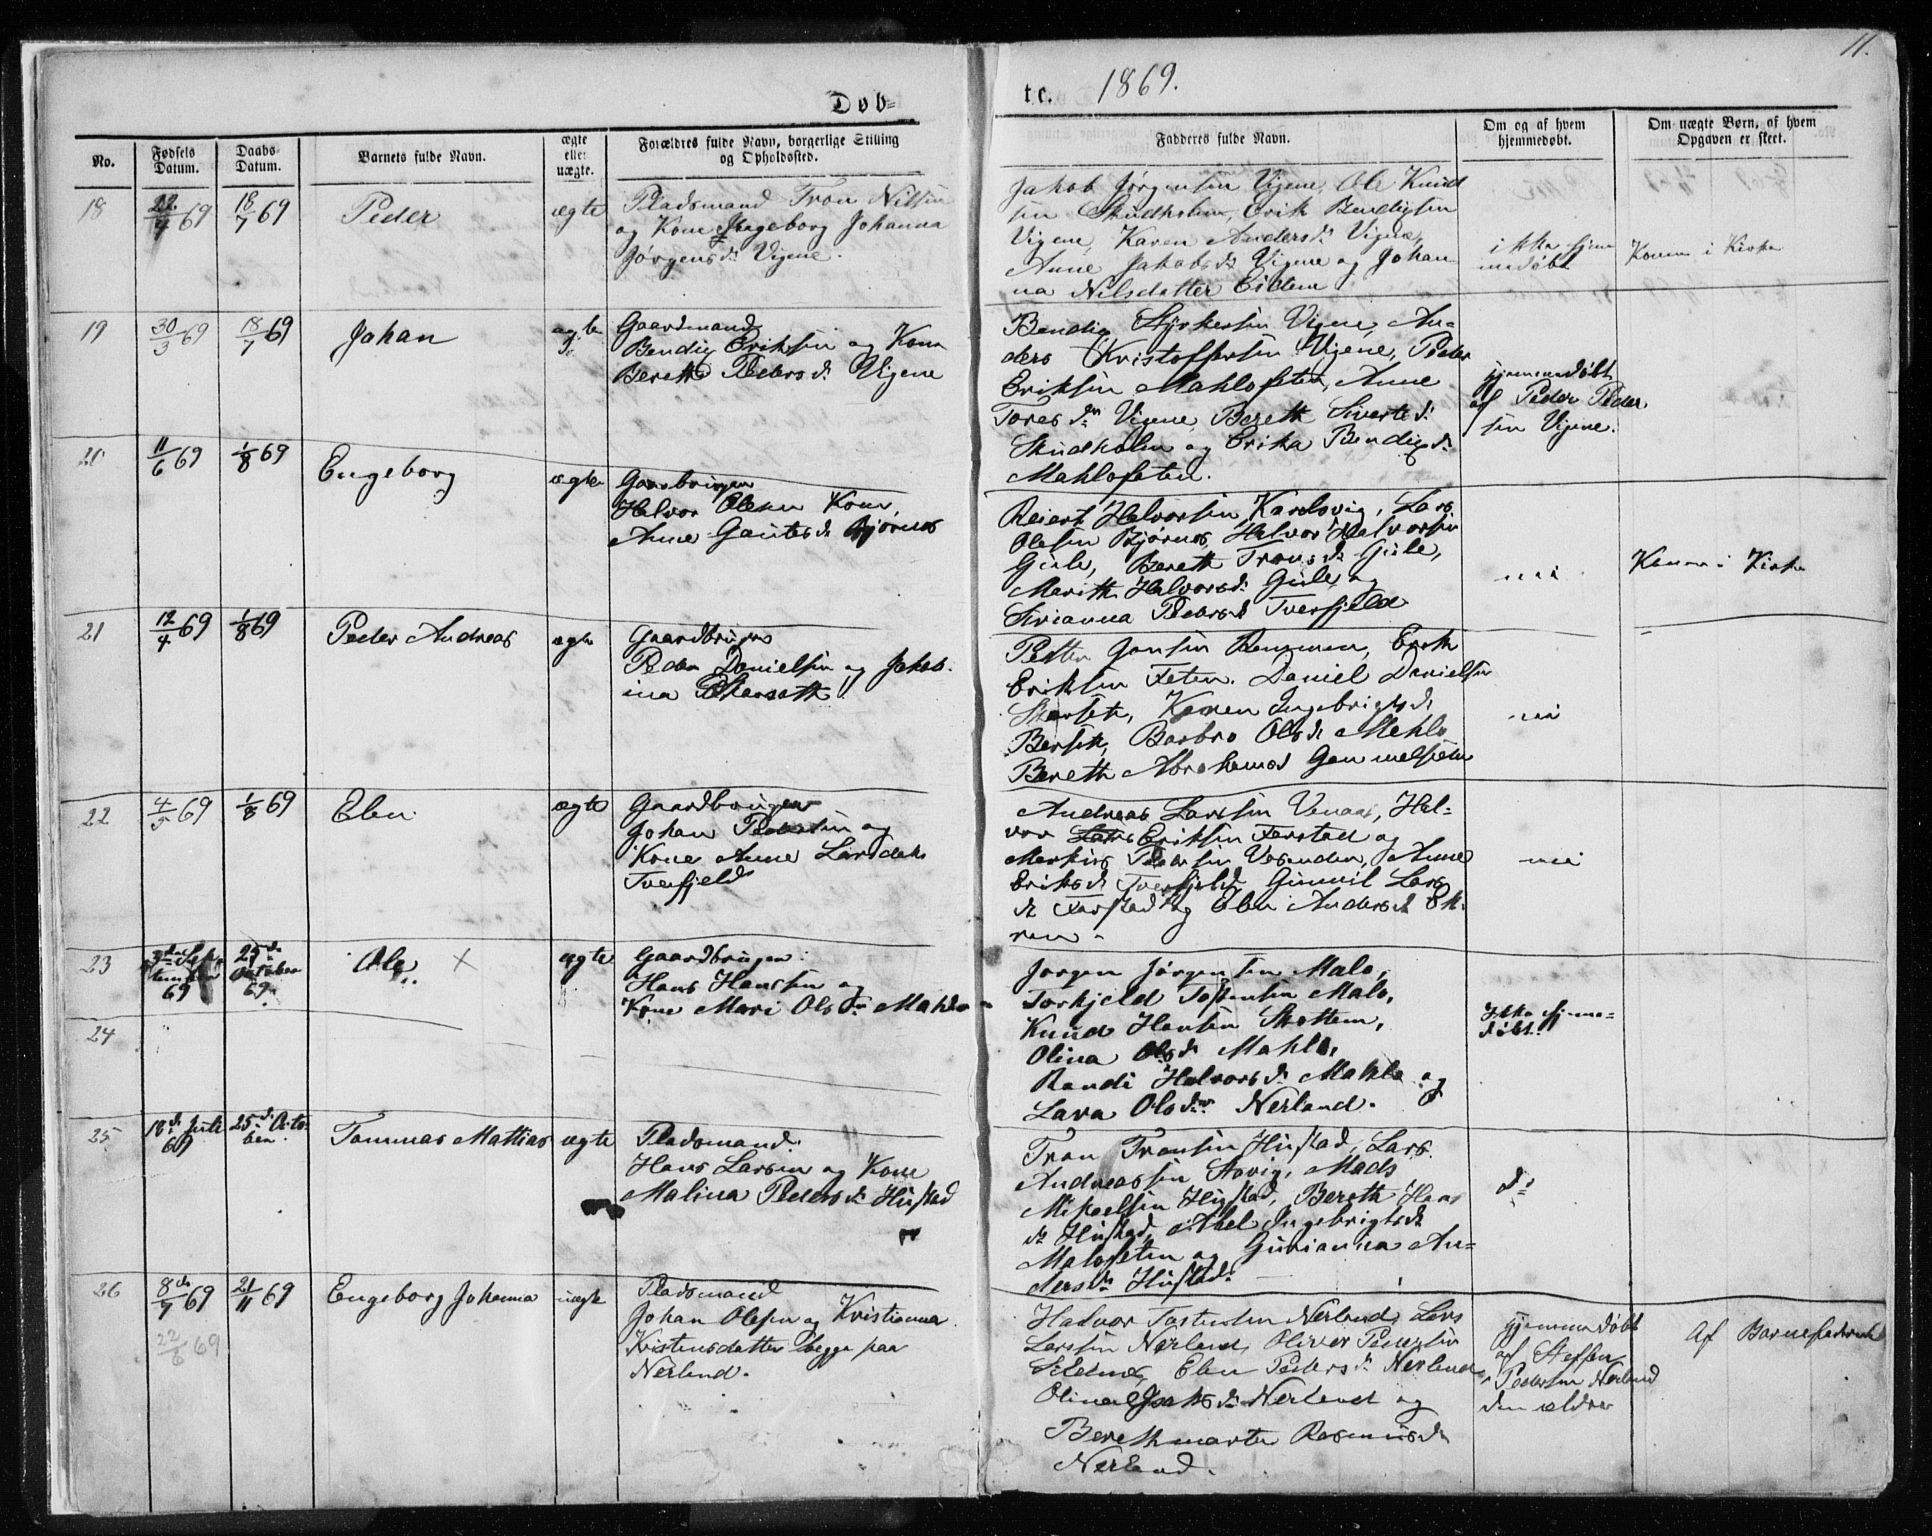 11.
Døb=
te. 1869.
No.
Fødsels
Datum.
Daabs
Datum.
Barnets fulde Navn.
ægte
eller
uægte.
Forældres fulde Navn, borgerlige Stilling
og Opholdssted.
Fadderes fulde Navn.
Om og af hvem
hjemmedøbt.
Om uægte Børn, af hvem
Opgaven er skeet.
18 22/4 69 18/7 69 Peder ægte
Pladsmand Tron Nilsen
og Kone Ingeborg Johanna
Jørgensd: Vigene.
Jakob Jørgensen Vigene, Ole Knud
sen Skudholm, Erik Bendigsen
Vigene, Karen Andersd: Vigene,
Anne Jakobsd: Vigene og Johan
na Nilsdatter Eidem
ikke hjem
medøbt
Konen i Kirke
19 30/3 69 18/7 69 Johan ægte
Gaardmand
Bendig Eriksen og Kone
Bereth Pedersd: Vigene
Bendig Styrkersen Vigene, An=
ders Kristoffersen Vigene, Peder
Eriksen Mahlofeten, Anne
Toresdr Vigene, Bereth Sivertsd:
Skudholm og Erika Bendigsd:
Mahlofeten.
hjemmedøbt
af Peder Peder
sen Vigene.
20 11/6 69 1/8 69 Engeborg ægte
Gaardbruger
Halvor Olesen Kone,
Anne Gautesd: Bjørnes
Reiert Halvorsen Karlsvig, Lars
Olesen Bjørnes, Halvor Halvorsen
Gule, Bereth Tronsd: Gule,
Marith Halvorsd: Gule og
Sirianna Pedersd Tverfjeld
nei
Konen i Kirke
21 12/4 69 1/8 69 Peder Andreas ægte
Gaardbruger
Peder Danielsen og Jakob
ina
Petter Jonsen Remmen, Erik
Eriksen Feten. Daniel Danielsen
Karen Ingebrigtsd:
Barbro Olsd: Mahlo
Bereth Abrahamsd
nei
22 4/5 69 1/8 69 Elen ægte
Gaardbruger
Johan Pedersen og
Kone Anne Larsdatr
Tverfjeld
Andreas Larssen Venaas, Hal=
vor Eriksen Farstad og
Markus Pedersen Vasenden, Anne
Eriksd: Tverfjeld, Gunnil Lars
d: Farstad og Elen Andersd:
23 3die Sep
tember
69 25de
October
69 Ole × ægte
Gaardbruger:
Hans Hansen og
Kone Mari Olsdr Mahlo
Jørgen Jørgensen Malo,
Torkjeld Tostensen Malo,
Knud Hansen Skottem,
Olina Olsd: Mahlo,
Randi Halvorsd: Mahlo og
Lava Olsdr Nerland.
Ikke hjemme=
døbt.
24
25 18de Juli
69 25de Octo
ber Tommas Mattias ægte
Pladsmand
Hans Larsen og Kone
Malina Pedersd: Hustad
Tron Tronsen Hustad, Lars
Andreassen Aavig, Mads
Mikaelsen Hustad, Bereth Hans
d: Hustad, Abel Ingebrigtsd:
Malofeten og Gurianna An=
dersdr Hustad.
do
26 8de/7 69 21/11 69 Engeborg Johanna uægte
22/6 69
Pladsmand
Johan Olesen og Kristianna
Kristensdatter begge paa
Nerland.
Halvor Tostensen Nerland, Lars
Larssen Nerland, Oliver Pedersen
Elen Pedersd: Nerland,
Olina Nerland og
Berethmarta Rasmusd:
Nerland.
hjemmedøbt
af Steffen
Pedersen Nerland
den ældre
Af Barnefaderen